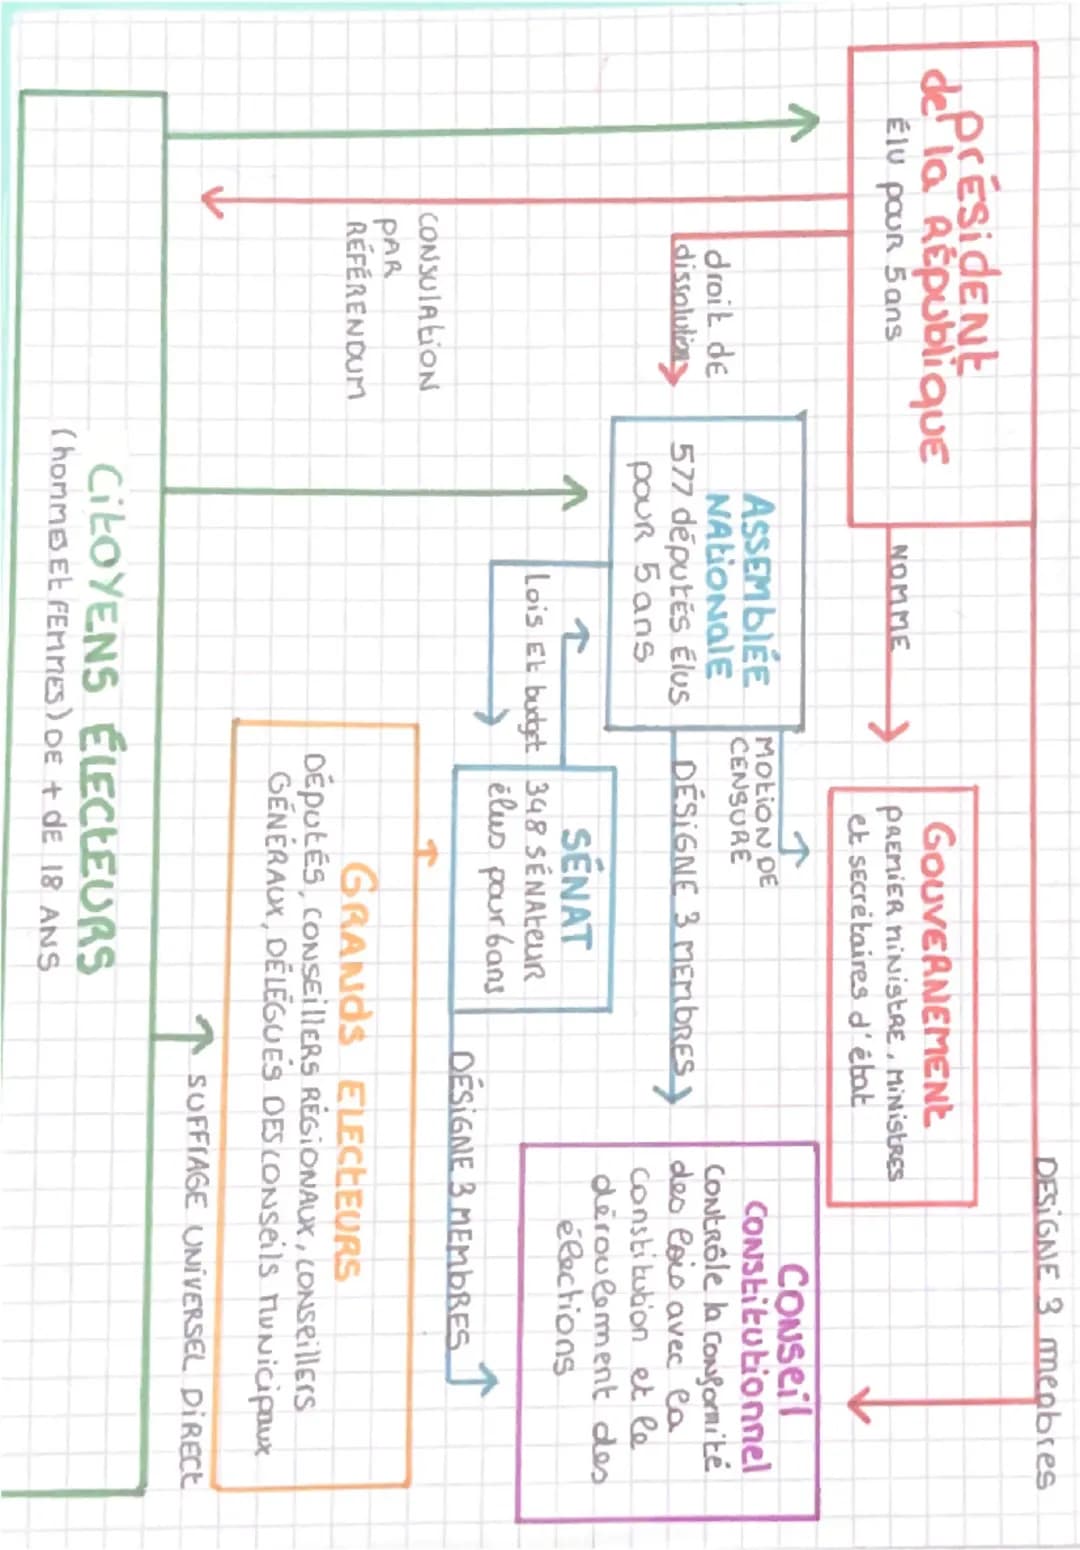 DESIGNE 3 meabres
PRÉSIDENT
de la RÉPUBLIQUE
Élu pour 5 ans
NOMME
GOUVERNEMENT
PREMIER MINISTRE, MINISTRES
et secrétaires d'état
droit de
dissolution
ASSEMBLÉE
NATIONALE
577 députés élus
pour 5 ans
MOTION DE
CENSURE
DÉSIGNE 3 MEMBRES
CONSEIL
CONSTITUTIONNEL
CONTRÔLE la conformité
des lois avec la
constitution et le
déroulement des
élections
CONSULATION
PAR
RÉFÉRENDUM
Lois Et budget
SÉNAT
348 SÉNATEUR
élus pour 6ans
DÉSIGNE 3 MEMBRES
GRANDS ELECTEURS
DÉPUTÉS, CONSEILLERS RÉGIONAUX, CONSEILLERS
GÉNÉRAUX, DÉLÉGUÉS DES CONSEILS MUNICIPAUX
SUFFAGE UNIVERSEL DIRECT
CITOYENS ÉLECTEURS
(hommes Et FEMMES) DE + DE 18 ANS